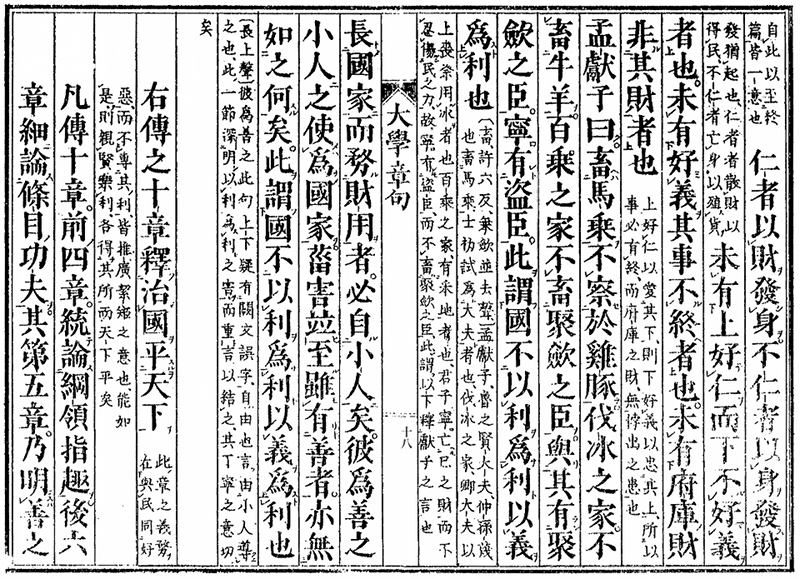 自此以至終
篇皆一意也
仁者以財發身不仁者以身發財
發猶起也仁者散財以
得民不仁者亡身以殖貨
未有上好仁而下不好義
者也未有好義其事不終者也未有府庫財
非其財者也
上好仁以愛其下則下好義以忠其上所以
事必有終而府庫之財無悖出之患也
孟獻子曰畜馬乘不察於雞豚伐冰之家不
畜牛羊百乘之家不畜聚斂之臣與其有聚
斂之臣寧有盜臣此謂國不以利爲利以義
爲利也
畜許六反乘斂並去聲孟獻子魯之賢大夫仲孫蔑
也畜馬乘士初試爲大夫者也伐冰之家卿大夫以
上喪祭用冰者也百乘之家有采地者也君子寧亡己之財而不
忍傷民之力故寧有盜臣而不畜聚斂之臣此謂以下釋獻子之言也
大學章句
十八
長國家而務財用者必自小人矣彼爲善之
小人之使爲國家菑害竝至雖有善者亦無
如之何矣此謂國不以利爲利以義爲利也
長上聲彼爲善之此句上下疑有闕文誤字自由也言由小人導
之也此一節深明以利爲利之害而重言以結之其丁寧之意切
矣
右傳之十章釋治國平天下
此章之義務
在與民同好
惡而不專其利皆推廣絜矩之意也能如
是則親賢樂利各得其所而天下平矣
凡傳十章前四章統論綱領指趣後六
章細論條目功夫其第五章乃明善之